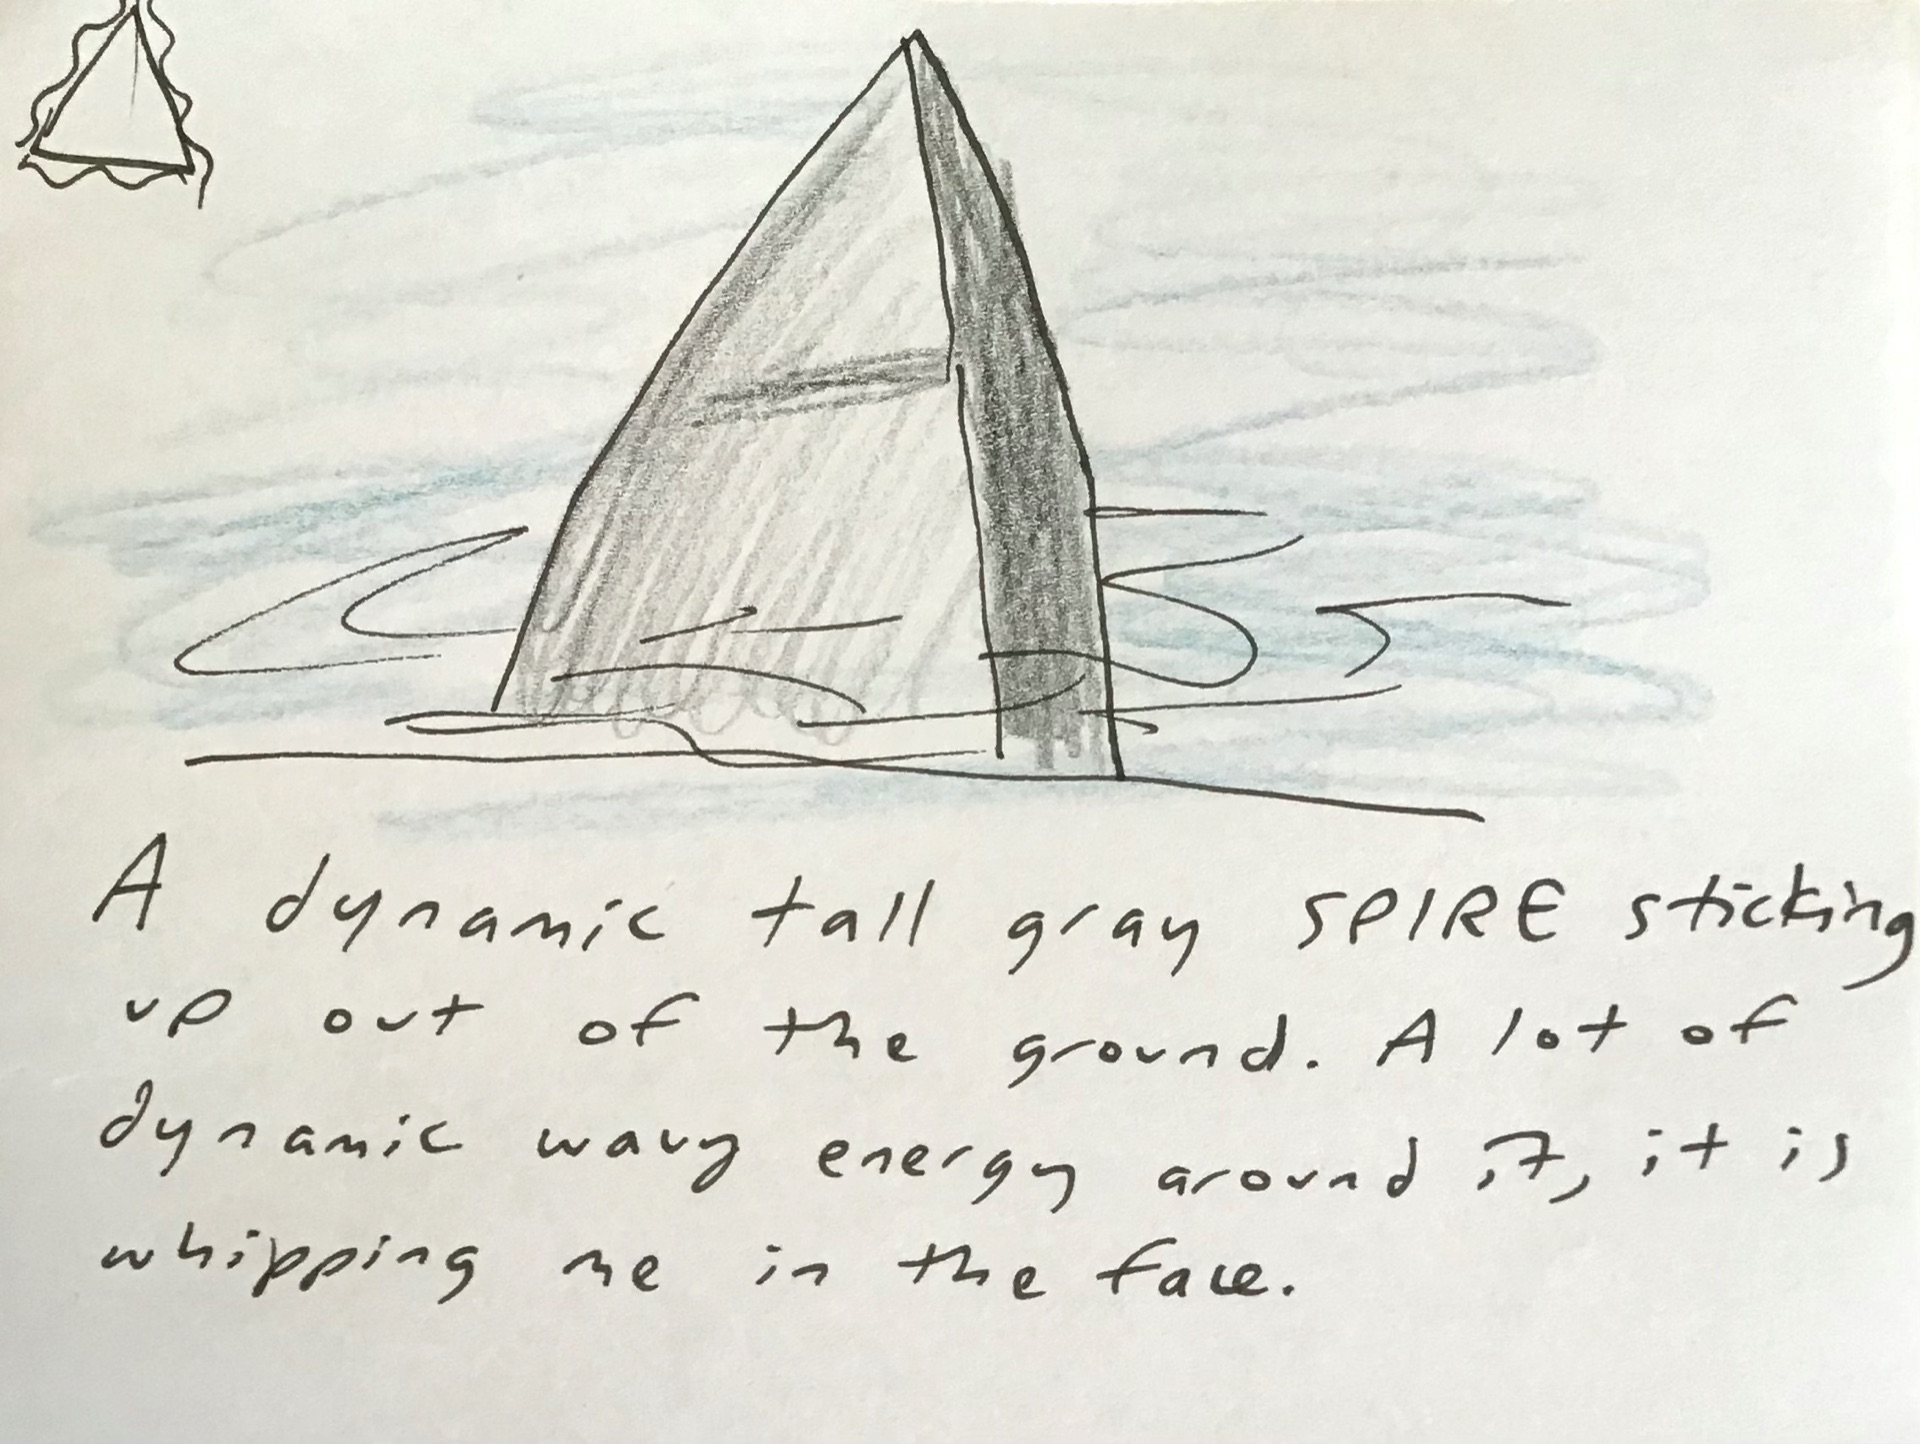 A dynamic tall gray SPIRE sticking
up out of the ground. A lot of
dynamic wavy energy around it, it is
whipping me in the face.